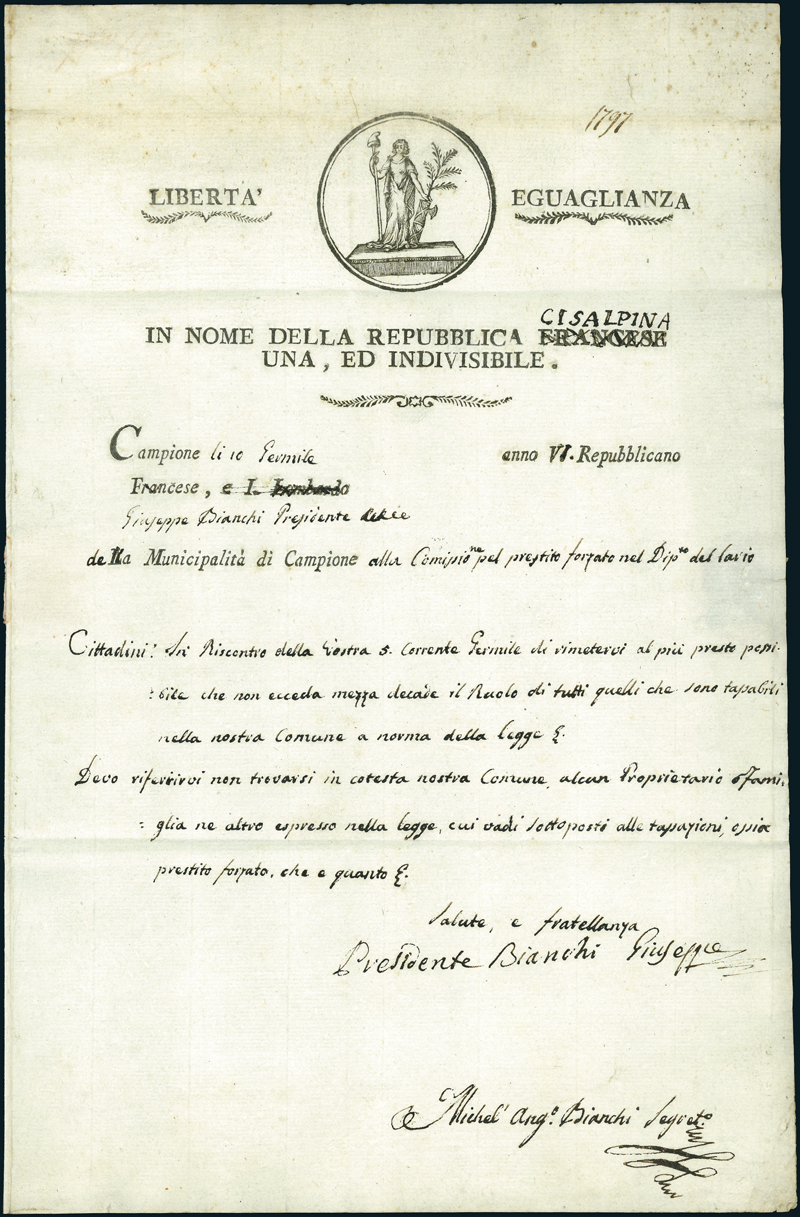 1797
LIBERTA' EGUAGLIANZA
CISALPINA
IN NOME DELLA REPUBBLICA FRANCESE
UNA, ED INDIVISIBILE.
Campione li 10 Germile anno VI. Repubblicano
Francese, e I. Lombardo
Giuseppe Bianchi Presidente
della Municipalità di Campione alla Comissione pel prestito forzato nel Dipto del Lario
Cittadini! In Riscontro della Vostra 5. Corrente Germile di rimetervi al più presto possi-
bile che non ecceda mezza decade il Ruolo di tutti quelli che sono tassabili
nella nostra Comune a norma della legge &.
Devo riferrirvi non trovarsi in cotesta nostra Comune, alcun Proprietario o Fami-
glia ne altro espresso nella legge, cui vadi sottoposti alle tassazioni, ossia
prestito forzato, che e quanto &.
Salute, e fratellanza
Presidente Bianchi Giuseppe
Michel Ango. Bianchi Segreto.